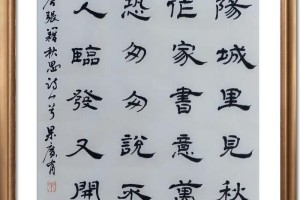 陽城里見秋
作家書意萬
恐匆匆說不
人臨發又開
張籍秋思詩